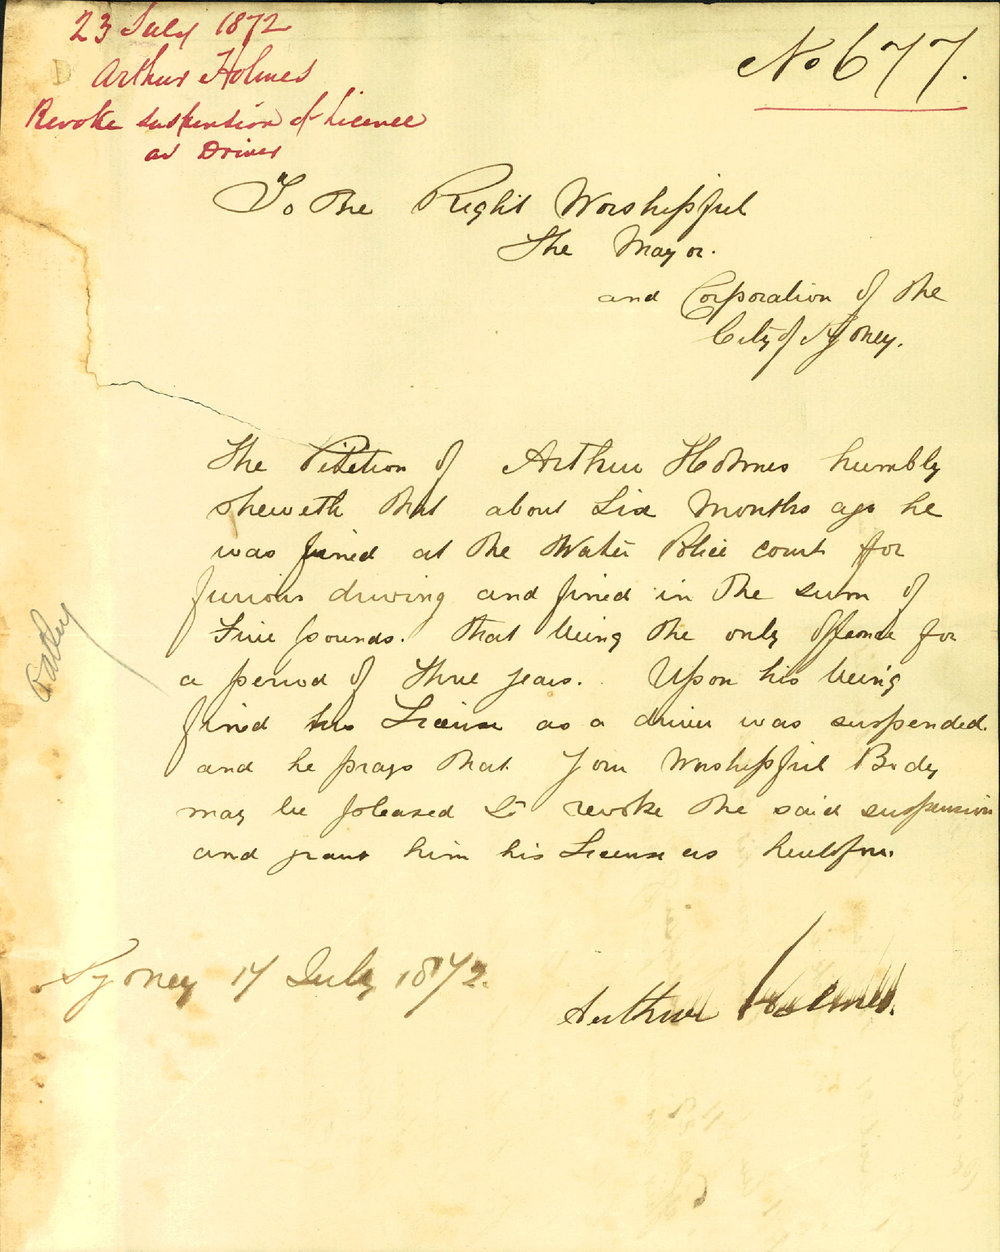 23 July 1872
Arthur Holmes
Revoke suspension of Licence
as Driver
No 677.
To the Right Worshipful
The Mayor.
and Corporation of the
City of Sydney.
The Petition of Arthur Holmes humbly
sheweth that about Six Months ago he
was fined at the Water Police court for
furious driving and fined in the sum of
Five pounds. that being the only offence for
a period of three years. Upon his being
fined his License as a driver was suspended.
and he prays that Your Worshipful Body
may be pleased to revoke the said suspension
and grant him his License as heretofore.
Sydney 17 July 1872.
Arthur Holmes.